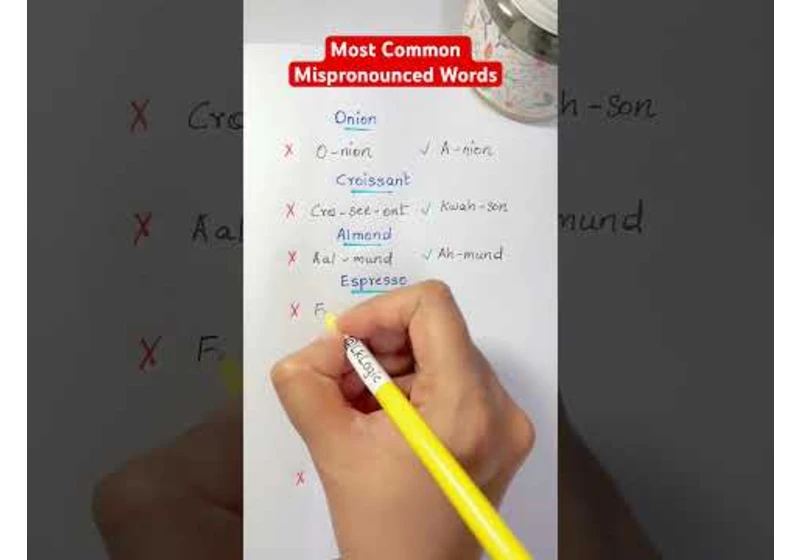 Most Common
Mispronounced Words
Onion
X O-nion ✓ A-nion
Croissant
X Cro-see-ont ✓ Kwah-son
Almond
X Aal-mund ✓ Ah-mund
Espresso
X
@LKLogic
X